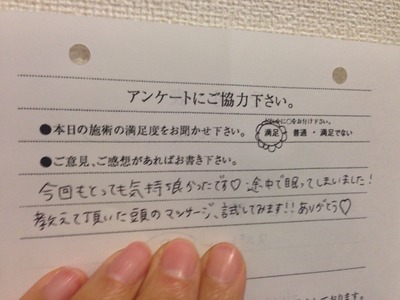 アンケートにご協力下さい。
●本日の施術の満足度をお聞かせ下さい。 満足 普通 ・ 満足でない
●ご意見、ご感想があればお書き下さい。
今回もとっても気持ち良かったです♡ 途中で眠ってしまいました!
教えて頂いた頭のマッサージ、試してみます!! ありがとう♡